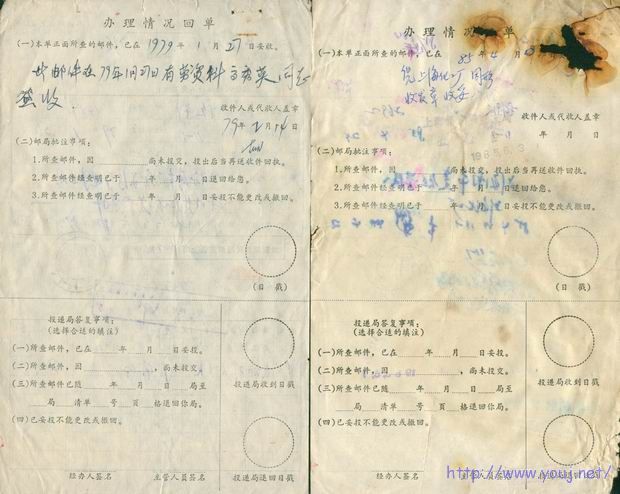 办理情况回单
(一)本单正面所查的邮件，已在1979年1月27日妥收。
此邮件在79年1月27日有
资料
同志
签收
收件人或代收人盖章
79年2月14日
(二)邮局批注事项：
1.所查邮件，因 尚未投交，投出后当再送收件回执。
2.所查邮件经查明已于 年 月 日退回给您。
3.所查邮件经查明已于 年 月 日妥投不能更改或撤回。
(日 戳)
投递局答复事项：
(选择合适的填注)
(一)所查邮件，已在 年 月 日妥投。
(二)所查邮件，因 尚未投交。
(三)所查邮件已随 年 月 日 局至
局 清单 号 页 格退回你局。
(四)已妥投不能更改或撤回。
投递局收到日戳
经办人签名 主管人员签名 投递局退回日戳
办理情况回单
(一)本单正面所查的邮件，已在85年4月
收件人或代收人盖章
年 月 日
(二)邮局批注事项：
1.所查邮件，因 尚未投交，投出后当再送收件回执。
2.所查邮件经查明已于 年 月 日退回给您。
3.所查邮件经查明已于 年 月 日妥投不能更改或撤回。
(日 戳)
投递局答复事项：
(选择合适的填注)
(一)所查邮件，已在 年 月 日妥投。
(二)所查邮件，因 尚未投交。
(三)所查邮件已随 年 月 日 局至
局 清单 号 页 格退回你局。
(四)已妥投不能更改或撤回。
投递局收到日戳
经办人签名 主管人员签名 投递局退回日戳
http://www.youj.net/